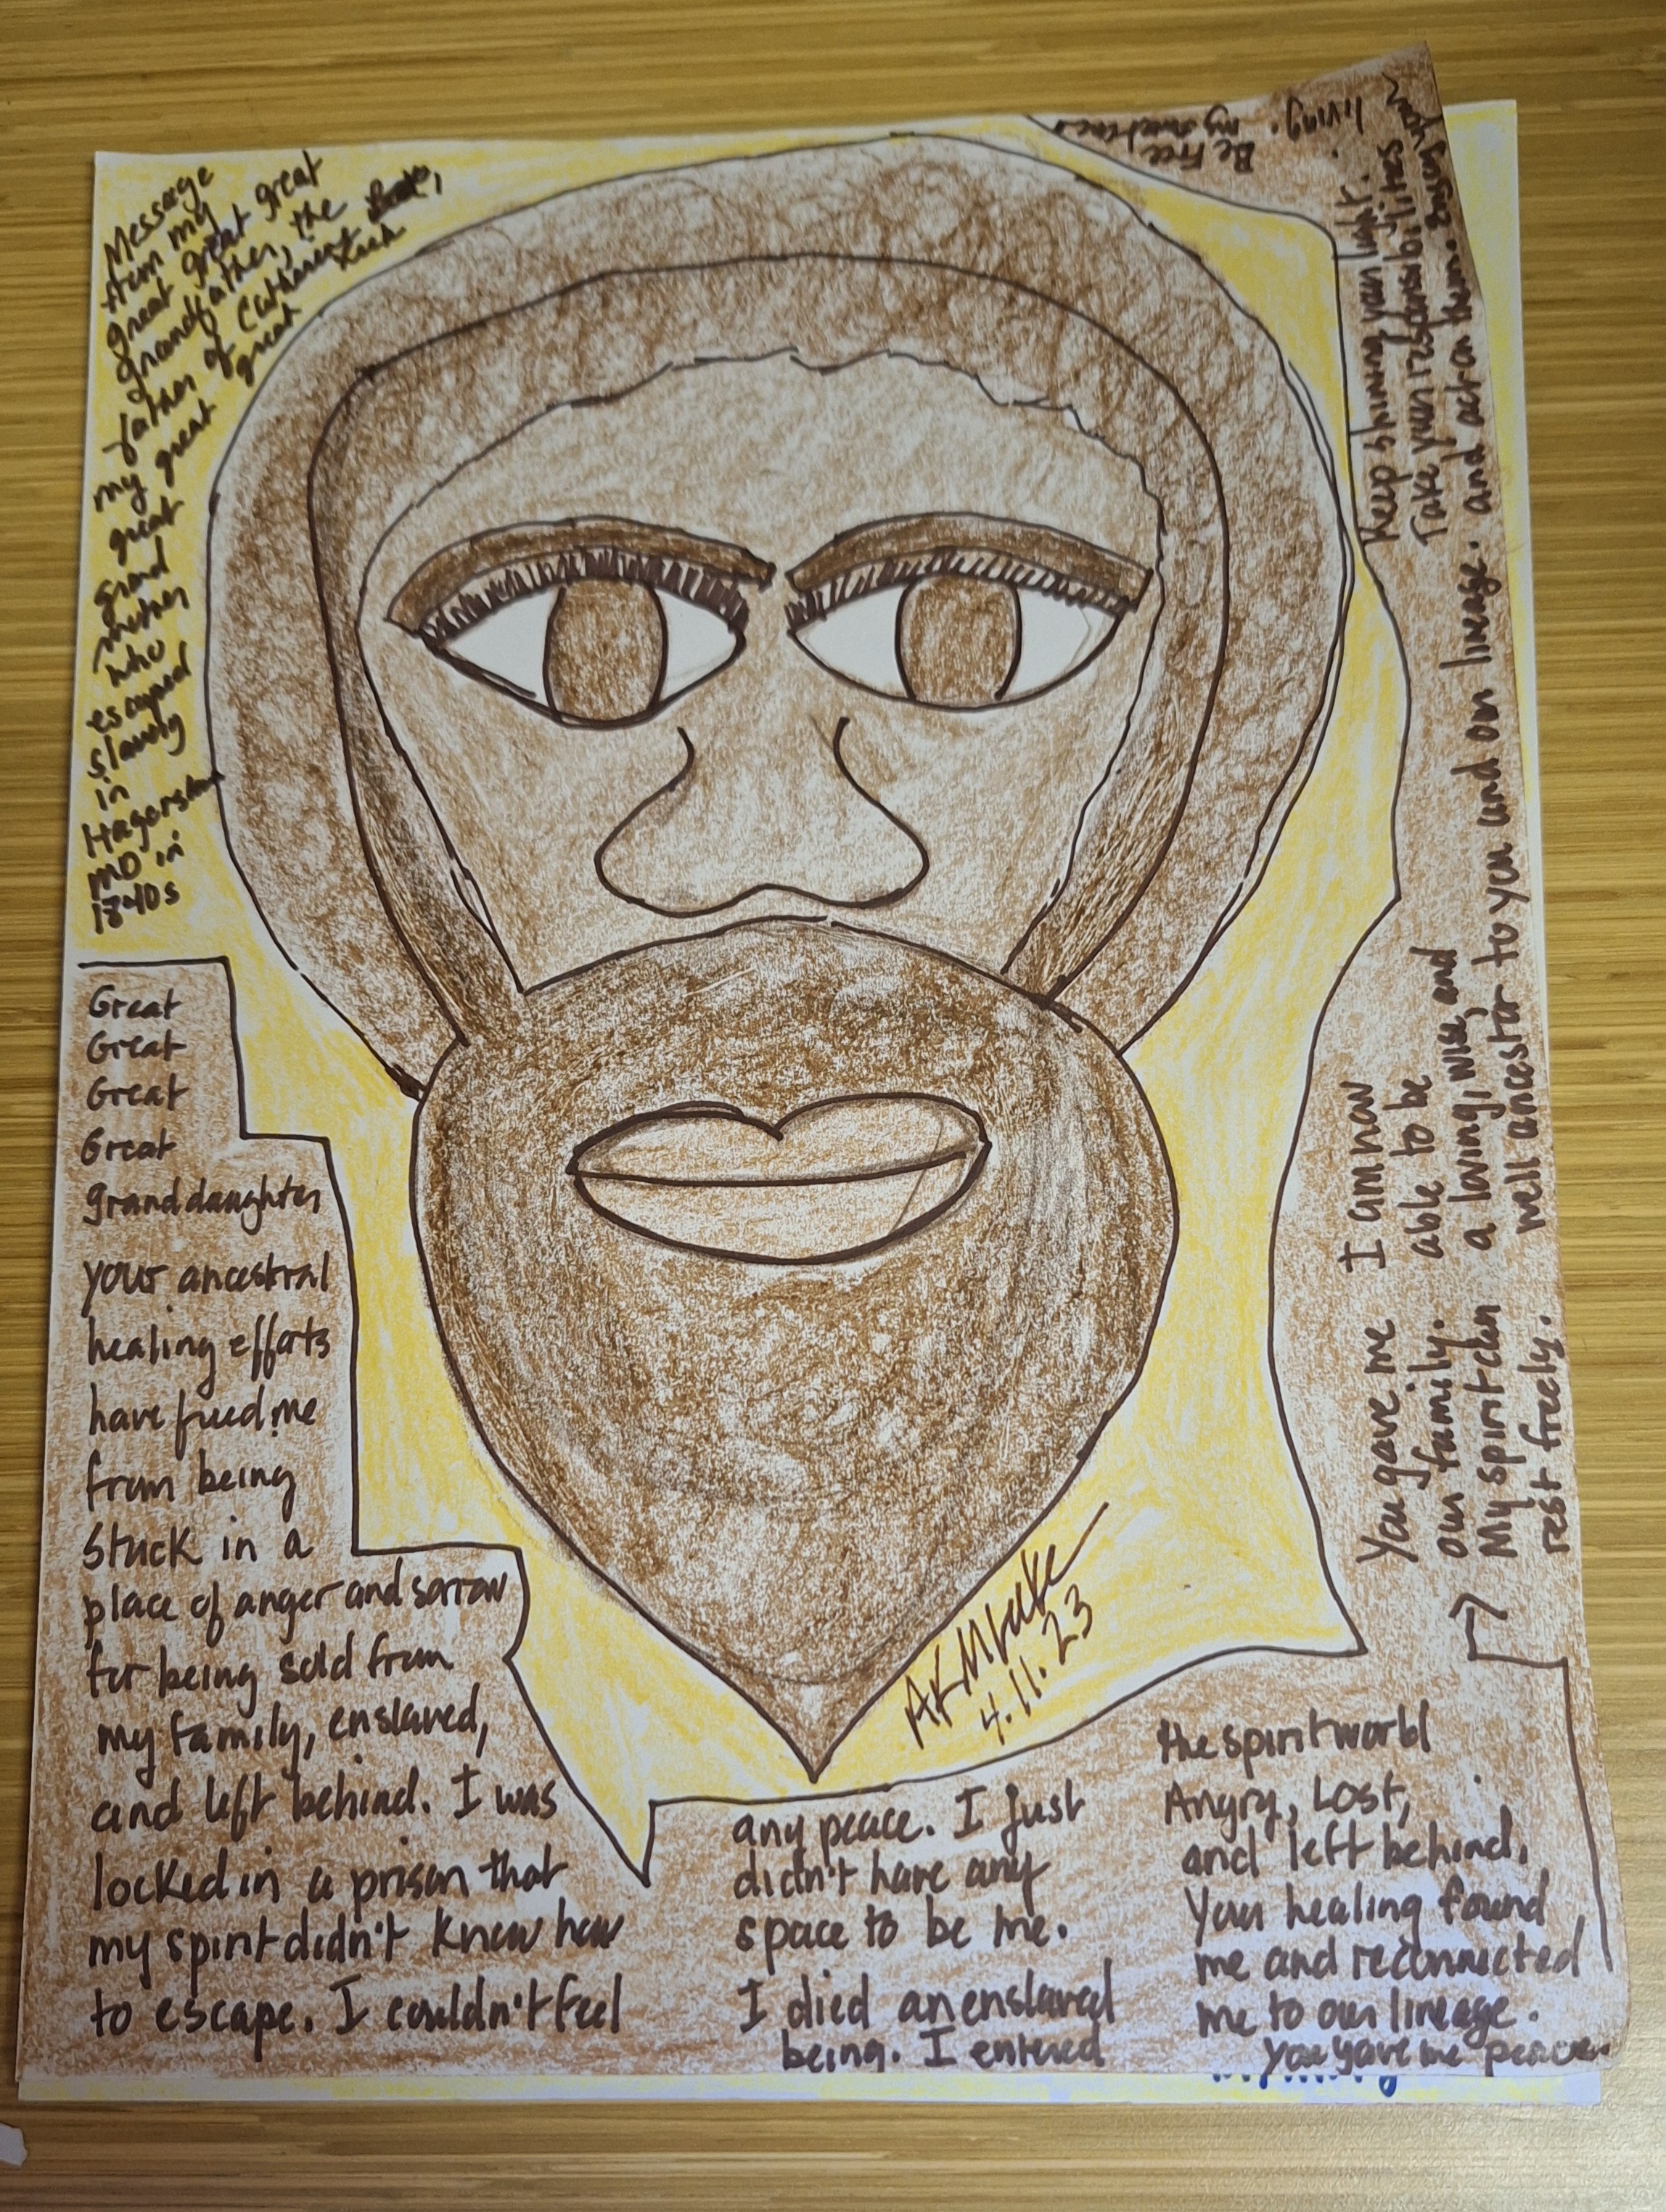 Message
from my
great great great
great
grandfather, the
father of Catherine
my great great
great
grand
mother
who
escaped
slavery
in
Hagerstown
MD in
1840s
Great
Great
Great
Great
granddaughter
your ancestral
healing efforts
have freed me
from being
stuck in a
place of anger and sorrow
for being sold from
my family, enslaved,
and left behind. I was
locked in a prison that
my spirit didn't know how
to escape. I couldn't feel
any peace. I just
didn't have any
space to be me.
I died an enslaved
being. I entered
the spirit world
Angry, Lost,
and left behind.
Your healing found
me and reconnected
me to our lineage.
You gave me peace.
You gave me I am now
our family. able to be
My spirit can a loving, wise, and
rest freely. well ancestor to you and our lineage.
Keep shining your light.
Take your responsibilities
and act on them. Enjoy
living.
Be Free
my
AKM
4.11.23